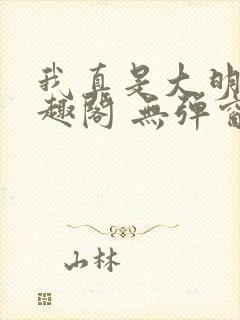 我真是大明
趣阁 無彈窗
山林